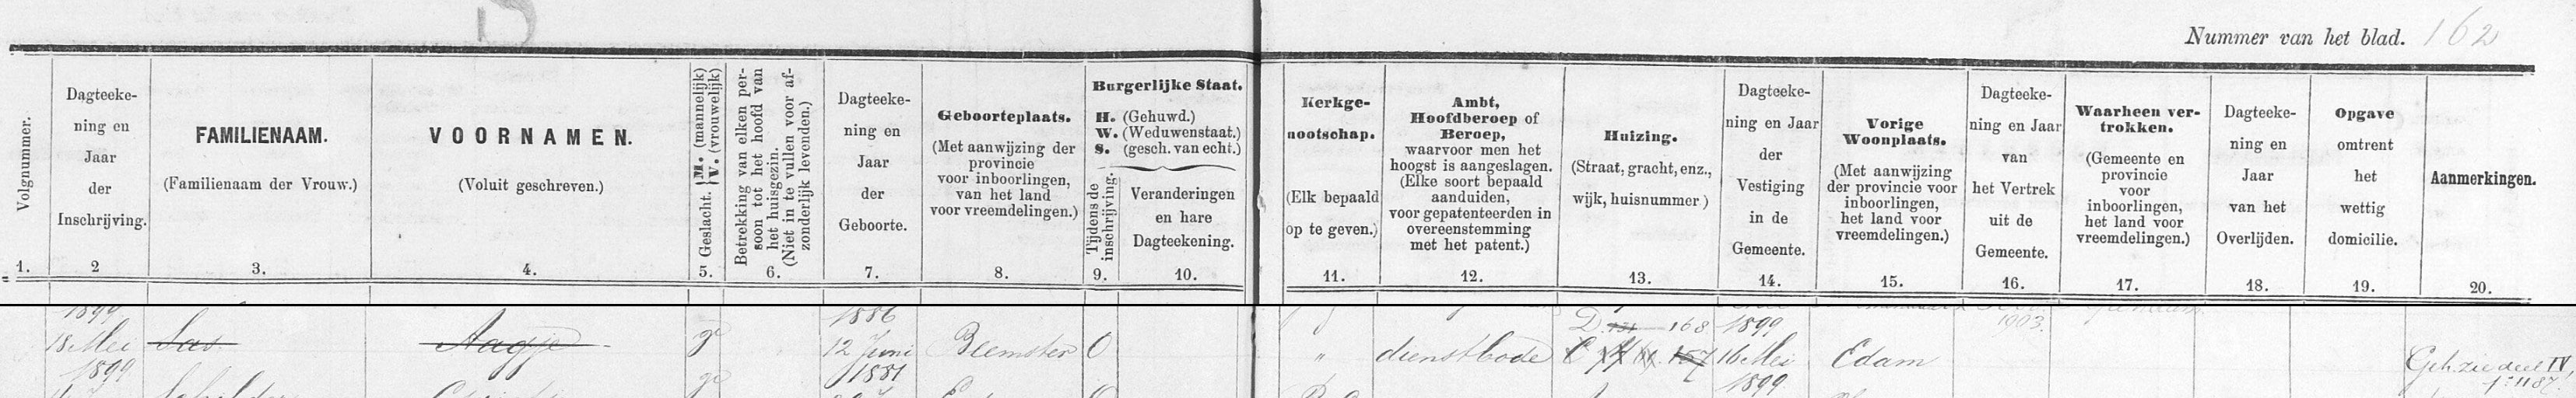 Nummer van het blad. 162
Volgnummer.
1.
Dagteeke-
ning en
Jaar
der
Inschrijving.
2
FAMILIENAAM.
(Familienaam der Vrouw.)
3.
VOORNAMEN.
(Voluit geschreven.)
4.
Geslacht. { M. (mannelijk)
V. (vrouwelijk)
5.
Betrekking van elken per-
soon tot het hoofd van
het huisgezin.
(Niet in te vullen voor af-
zonderlijk levenden.)
6.
Dagteeke-
ning en
Jaar
der
Geboorte.
7.
Geboorteplaats.
(Met aanwijzing der
provincie
voor inboorlingen,
van het land
voor vreemdelingen.)
8.
Burgerlijke Staat.
H. (Gehuwd.)
W. (Weduwenstaat.)
S. (gesch. van echt.)
Tijdens de
inschrijving.
9.
Veranderingen
en hare
Dagteekening.
10.
Kerkge-
nootschap.
(Elk bepaald
op te geven.)
11.
Ambt,
Hoofdberoep of
Beroep,
waarvoor men het
hoogst is aangeslagen.
(Elke soort bepaald
aanduiden,
voor gepatenteerden in
overeenstemming
met het patent.)
12.
Huizing.
(Straat, gracht, enz.,
wijk, huisnummer)
13.
Dagteeke-
ning en Jaar
der
Vestiging
in de
Gemeente.
14.
Vorige
Woonplaats.
(Met aanwijzing
der provincie voor
inboorlingen,
het land voor
vreemdelingen.)
15.
Dagteeke-
ning en Jaar
van
het Vertrek
uit de
Gemeente.
16.
Waarheen ver-
trokken.
(Gemeente en
provincie
voor
inboorlingen,
het land voor
vreemdelingen.)
17.
Dagteeke-
ning en
Jaar
van het
Overlijden.
18.
Opgave
omtrent
het
wettig
domicilie.
19.
Aanmerkingen.
20.
1899 1886 D. 131 168 1899 1903.
18 Mei Sas Aagje v 12 Juni Beemster O " dienstbode 157 16 Mei Edam Geh. zie deel IV,
1899 1881 1899 f° 1187.